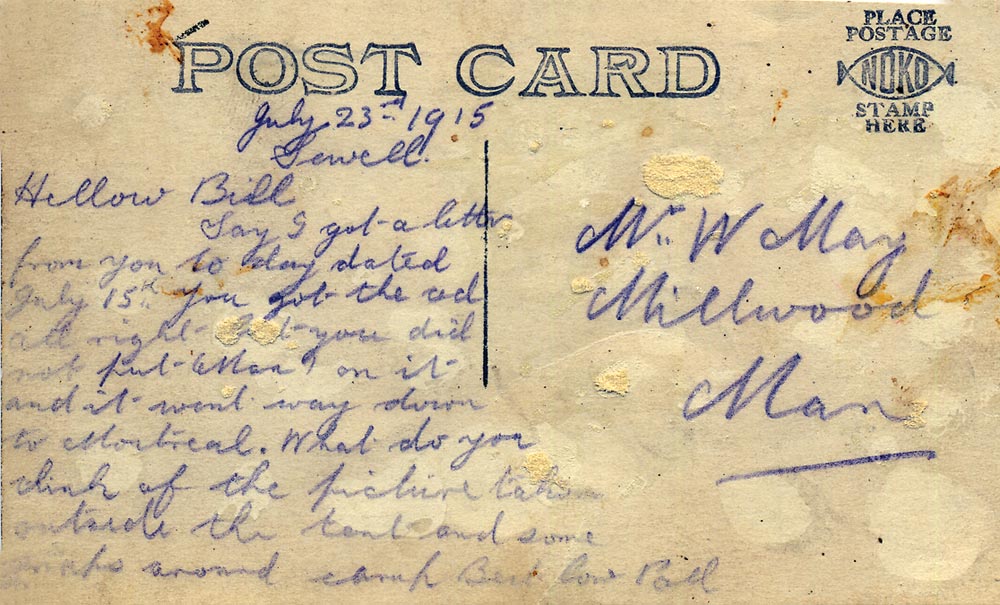 POST CARD
PLACE
POSTAGE
NOKO
STAMP
HERE
July 23rd 1915
Sewell.
Hellow Bill
Say I got a letter
from you to day dated
July 15th you got the ad
all right but you did
not put "Man" on it
and it went way down
to Montreal. What do you
think of the picture taken
outside the tent and some
snaps around camp Best
Mr. W May
Millwood
Man